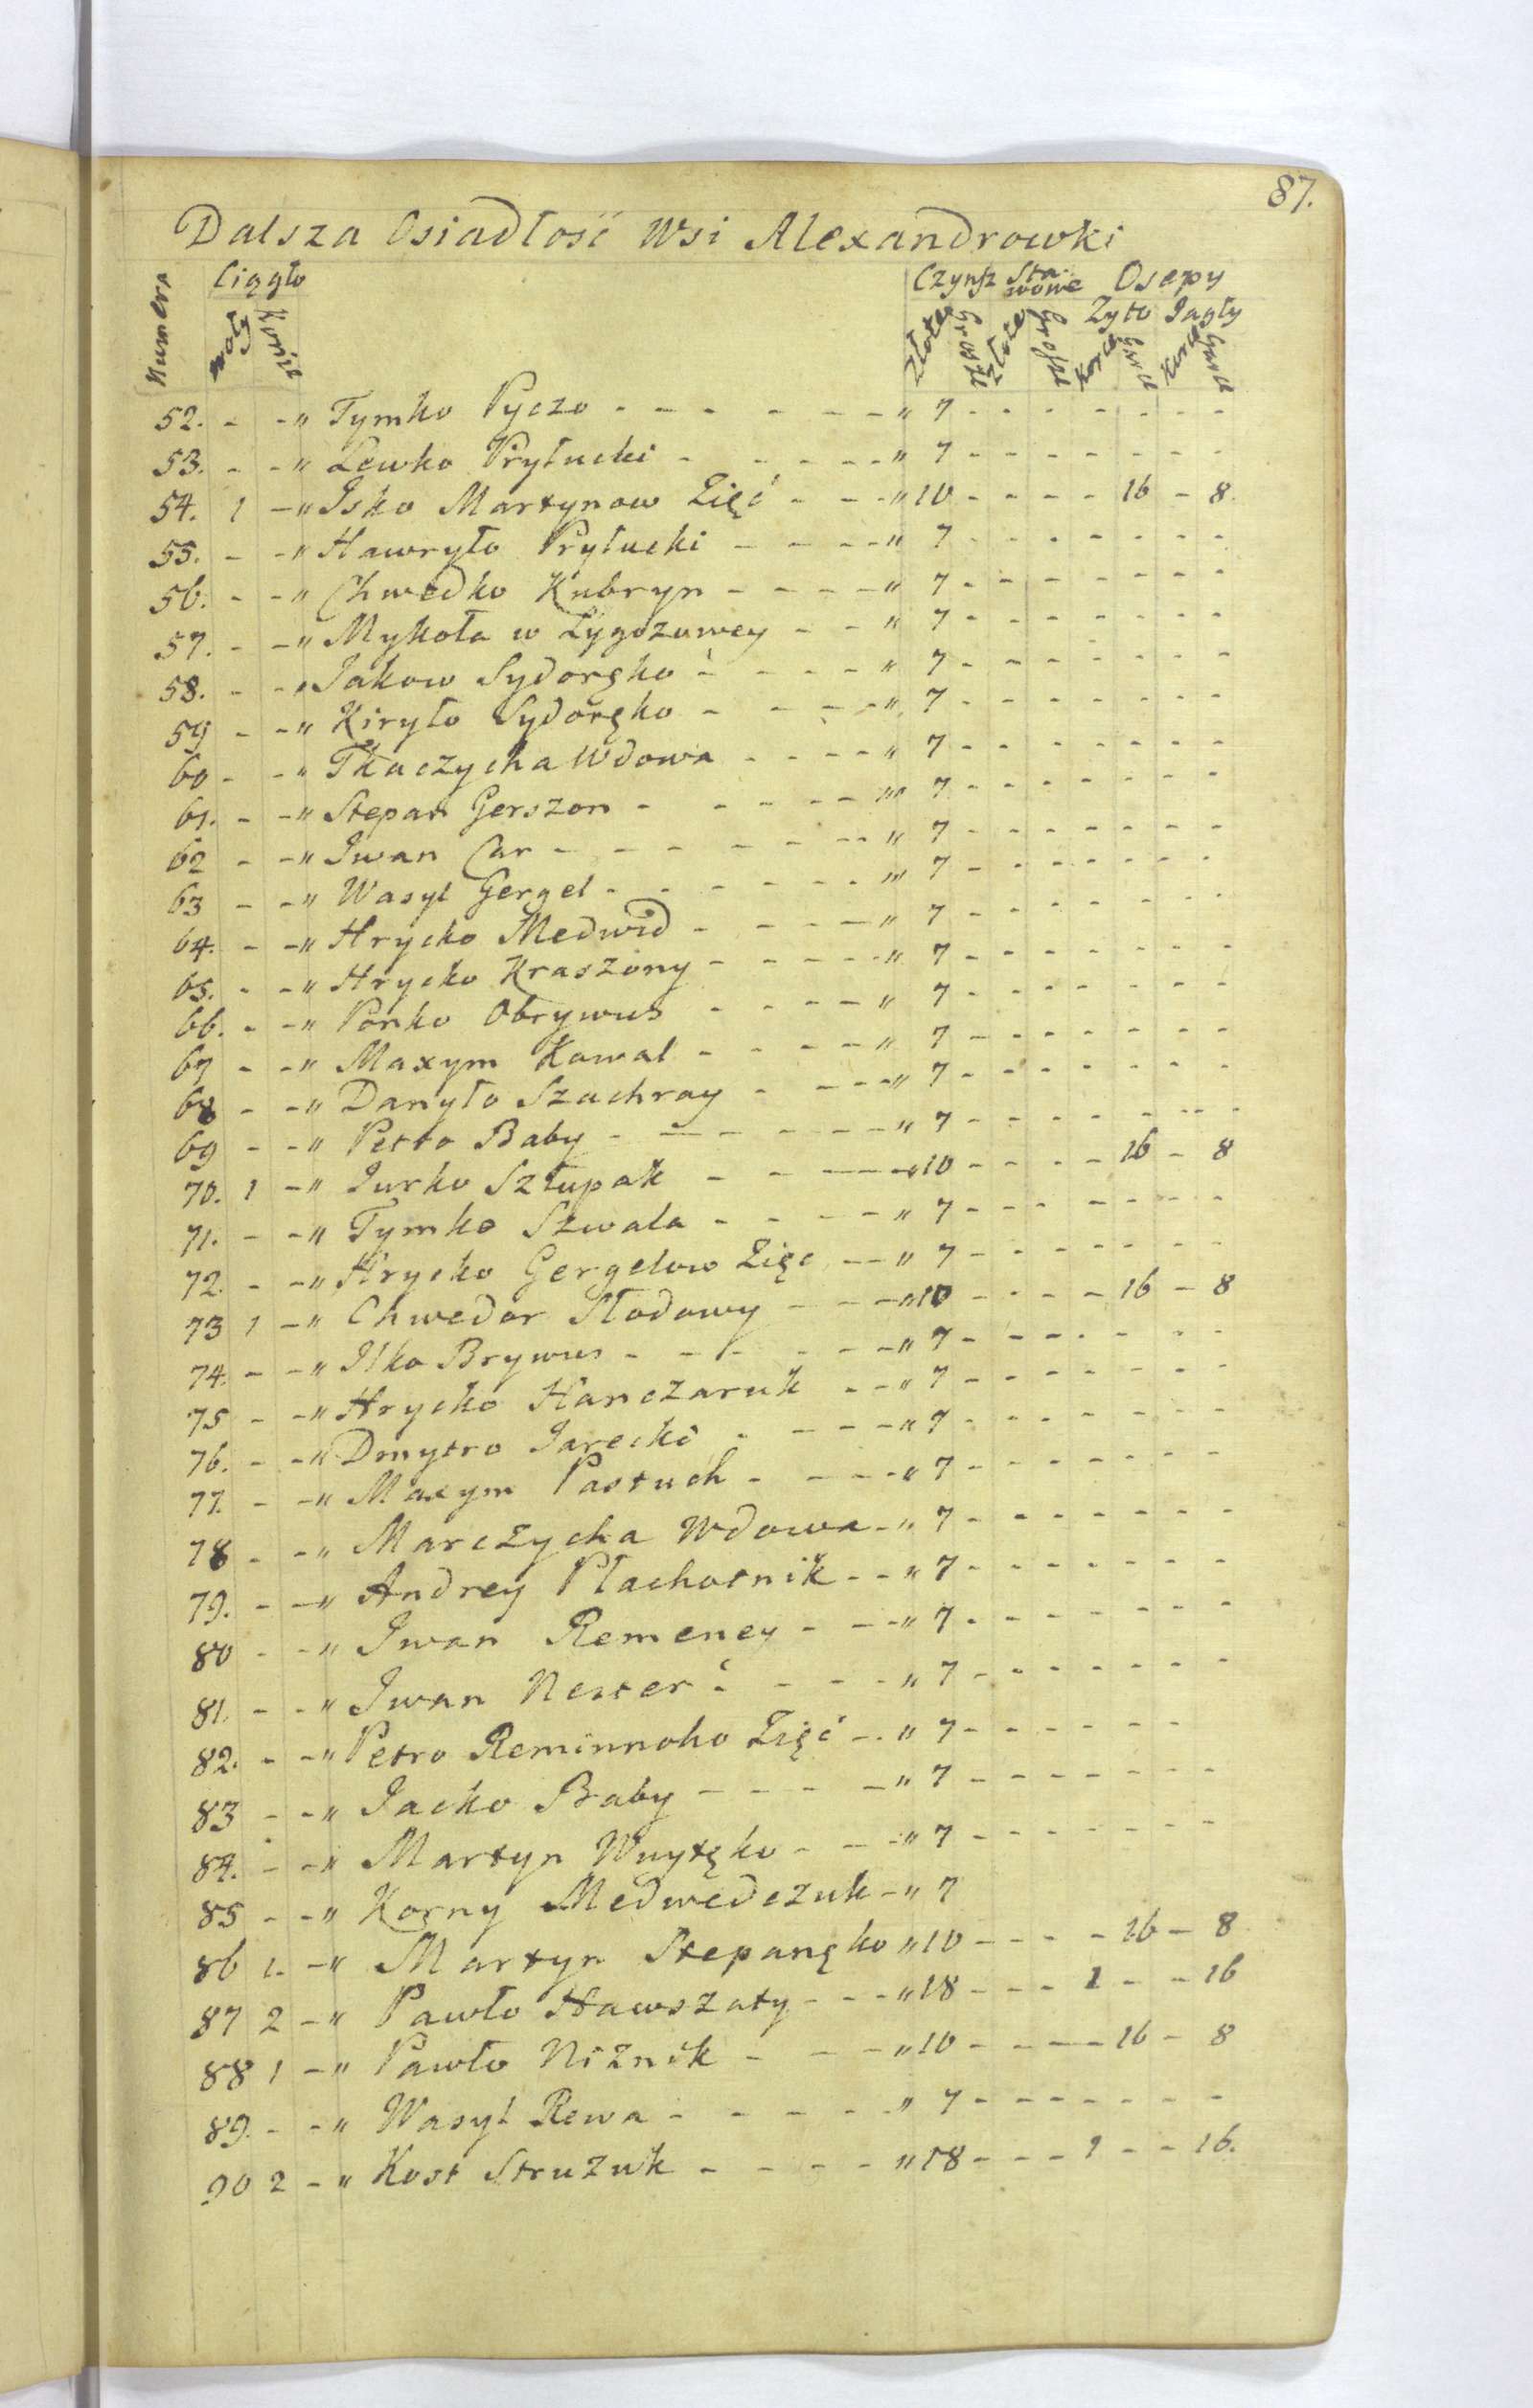 87.
Dalsza Osiadłosć Wsi Alexandrowki
Numera Ciągło Czynsz Stawowe Osepy
Woły Konie Złote Grosze Złote Grosze Zyto Jagły
Korce Garce Korce Garce
52. - - " Tymko Pyczo - - - - - - - " 7 - - - - - - - -
53. - - " Lewko Prytucki - - - - - " 7 - - - - - - - -
54. 1 - " Isko Martynow Zięć - - - " 10 - - - - 16 - 8.
55. - - " Hawryło Prytucki - - - - " 7 - - - - - - - -
56. - - " Chwedko Kubryn - - - - " 7 - - - - - - - -
57. - - " Mykoła w Lygozuwey - - " 7 - - - - - - - -
58. - - " Jakow Sydoręko - - - - " 7 - - - - - - - -
59 - - " Kiryło Sydoręko - - - - " 7 - - - - - - - -
60 - - " Tkaczycha Wdowa - - - - " 7 - - - - - - - -
61. - - " Stepan Gerszon - - - - - " 7 - - - - - - - -
62 - - " Iwan Car - - - - - - - " 7 - - - - - - - -
63 - - " Wasyl Gergel - - - - - - - " 7 - - - - - - - -
64. - - " Hrycko Medwid - - - - " 7 - - - - - - - -
65. - - " Hrycko Kraszony - - - - - " 7 - - - - - - - -
66. - - " Pańko Obrywus - - - - " 7 - - - - - - - -
67 - - " Maxym Kowal - - - - - " 7 - - - - - - - -
68 - - " Danyło Szachray - - - - " 7 - - - - - - - -
69 - - " Petro Baby - - - - - - - " 7 - - - - - - - -
70. 1 - " Iurko Sztupak - - - - - " 10 - - - - 16 - 8
71. - - " Tymko Szwala - - - - - " 7 - - - - - - - -
72. - - " Hrycko Gergelow Zięc - - " 7 - - - - - - - -
73 1 - " Chwedor Słodowy - - - " 10 - - - - 16 - 8
74. - - " Ilko Brywus - - - - - - " 7 - - - - - - -
75 - - " Hrycko Hanczaruk - - " 7 - - - - - - - -
76. - - " Dmytro Jarecki - - - - " 7 - - - - - - - -
77. - - " Maxym Pastuch - - - - " 7 - - - - - - - -
78 - - " Marczycha Wdowa - " 7 - - - - - - - -
79. - - " Andrey Płachotnik - - " 7 - - - - - - - -
80 - - " Iwan Remeney - - - " 7 - - - - - - - -
81. - - " Iwan Nester - - - - " 7 - - - - - - - -
82. - - " Petro Reminnoho Zięć - - " 7 - - - - - -
83 - - " Jacko Baby - - - - " 7 - - - - - - - -
84. - - " Martyn Wnytęko - - - " 7 - - - - - - - -
85 - - " Korny Medwedczuk - " 7
86 1. - " Martyn Stepanęko " 10 - - - - 16 - 8
87 2 - " Pawło Hawszaty - - - " 18 - - - 1 - - 16
88 1 - " Pawło Niznik - - - " 10 - - - - 16 - 8
89. - - " Wasyl Rewa - - - - - " 7 - - - - - - - -
90 2 - " Kost Struzuk - - - - " 18 - - - 1 - - 16.